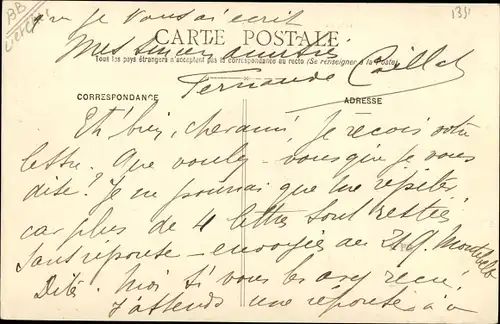 BB
1351
je vous ai écrit
Mes sincères amitiés
CARTE POSTALE
Tous les pays étrangers n'acceptent pas la correspondance au recto (Se renseigner à la Poste)
Fernande Caillat
CORRESPONDANCE
ADRESSE
Eh! bien, cher ami, je reçois votre
lettre. Que voulez-vous que je vous
dise? Je ne pourrais que me répéter
car plus de 4 lettres sont restées
sans réponse – envoyées au 21 9.
Dites-moi si vous les avez reçu.
J'attends une réponse à